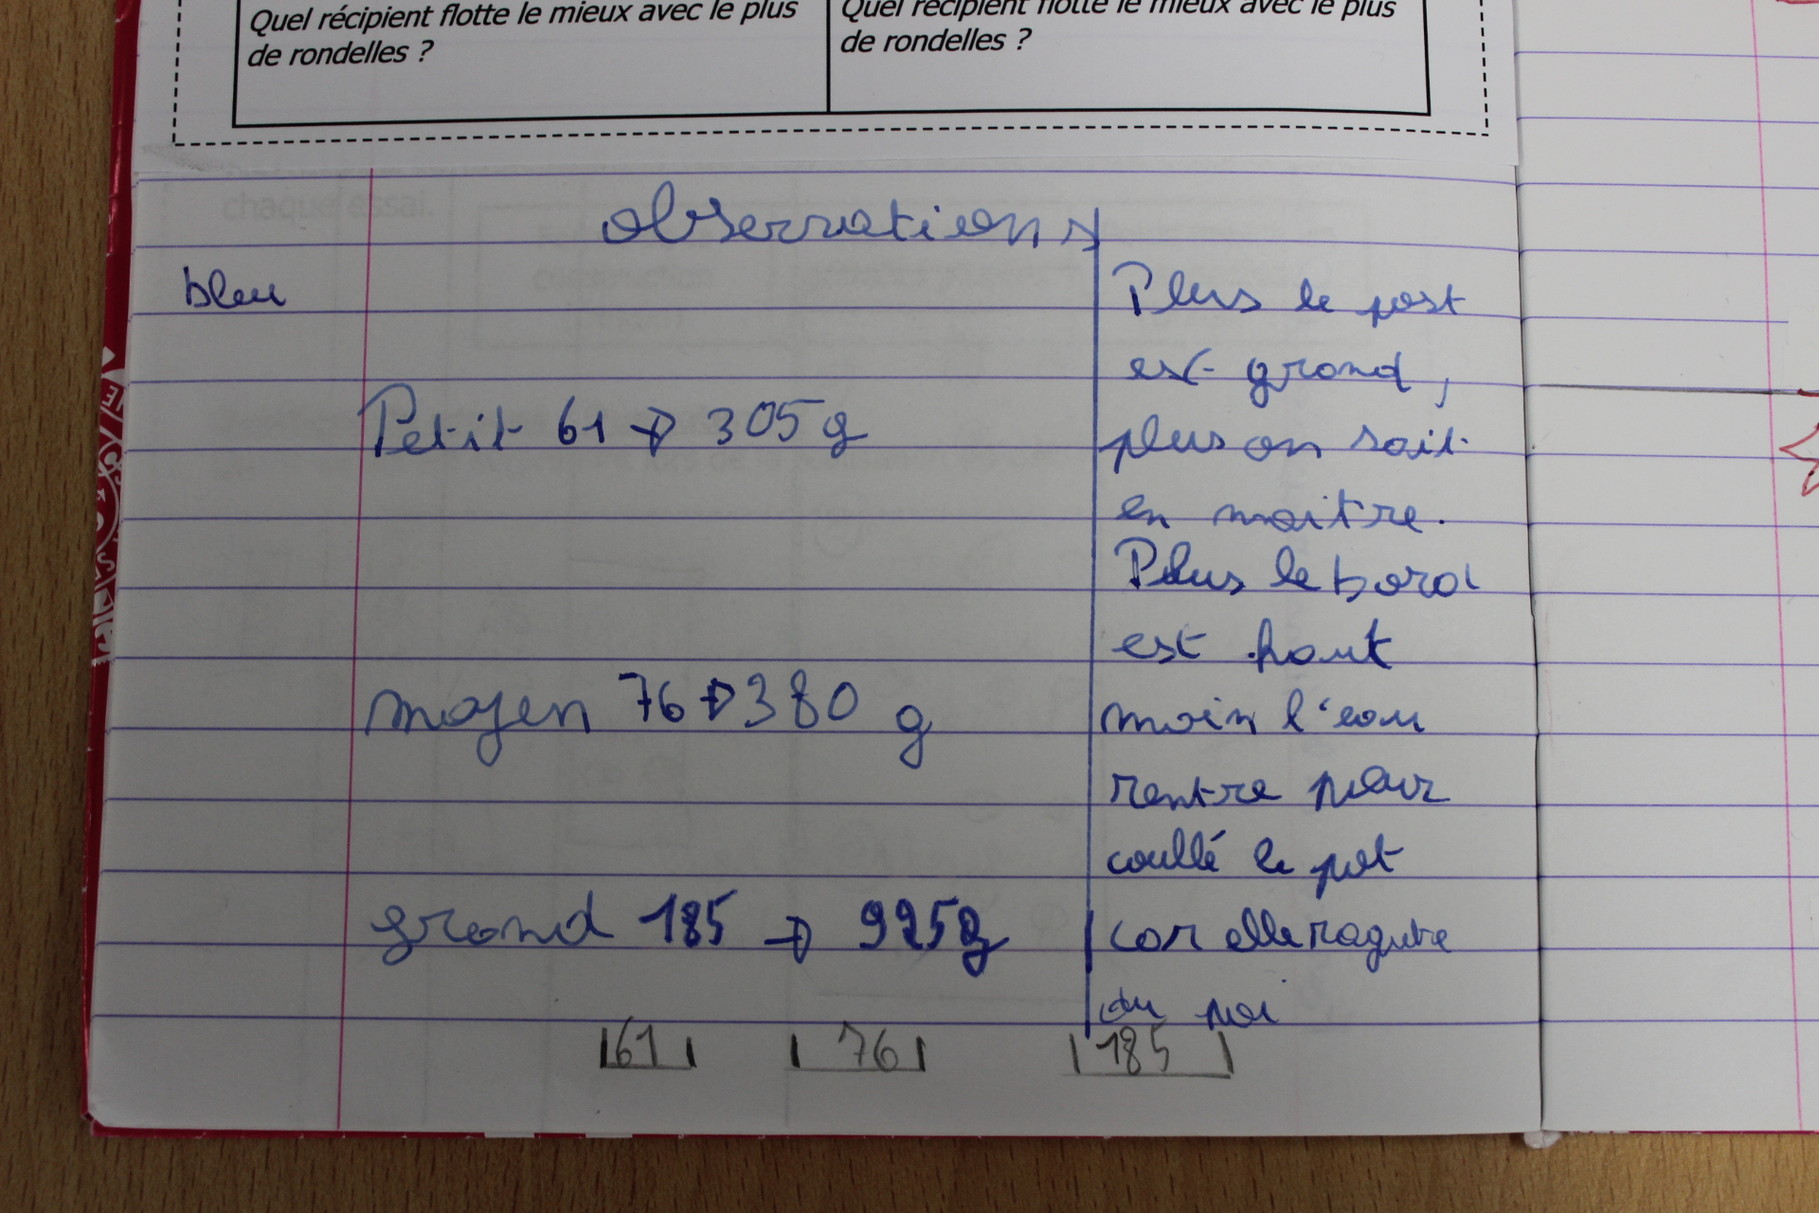 Quel récipient flotte le mieux avec le plus
de rondelles ?
Quel récipient flotte le mieux avec le plus
de rondelles ?
chaque essai.
observations
bleu
Petit 61 → 305g
moyen 76 → 380 g
grand 185 → 925g
Plus le post
est grand,
plus on sait
en maitre.
Plus le bord
est haut
moin l'eau
rentre pour
coullé le pot
car elle ragute
du poi
61 76 185